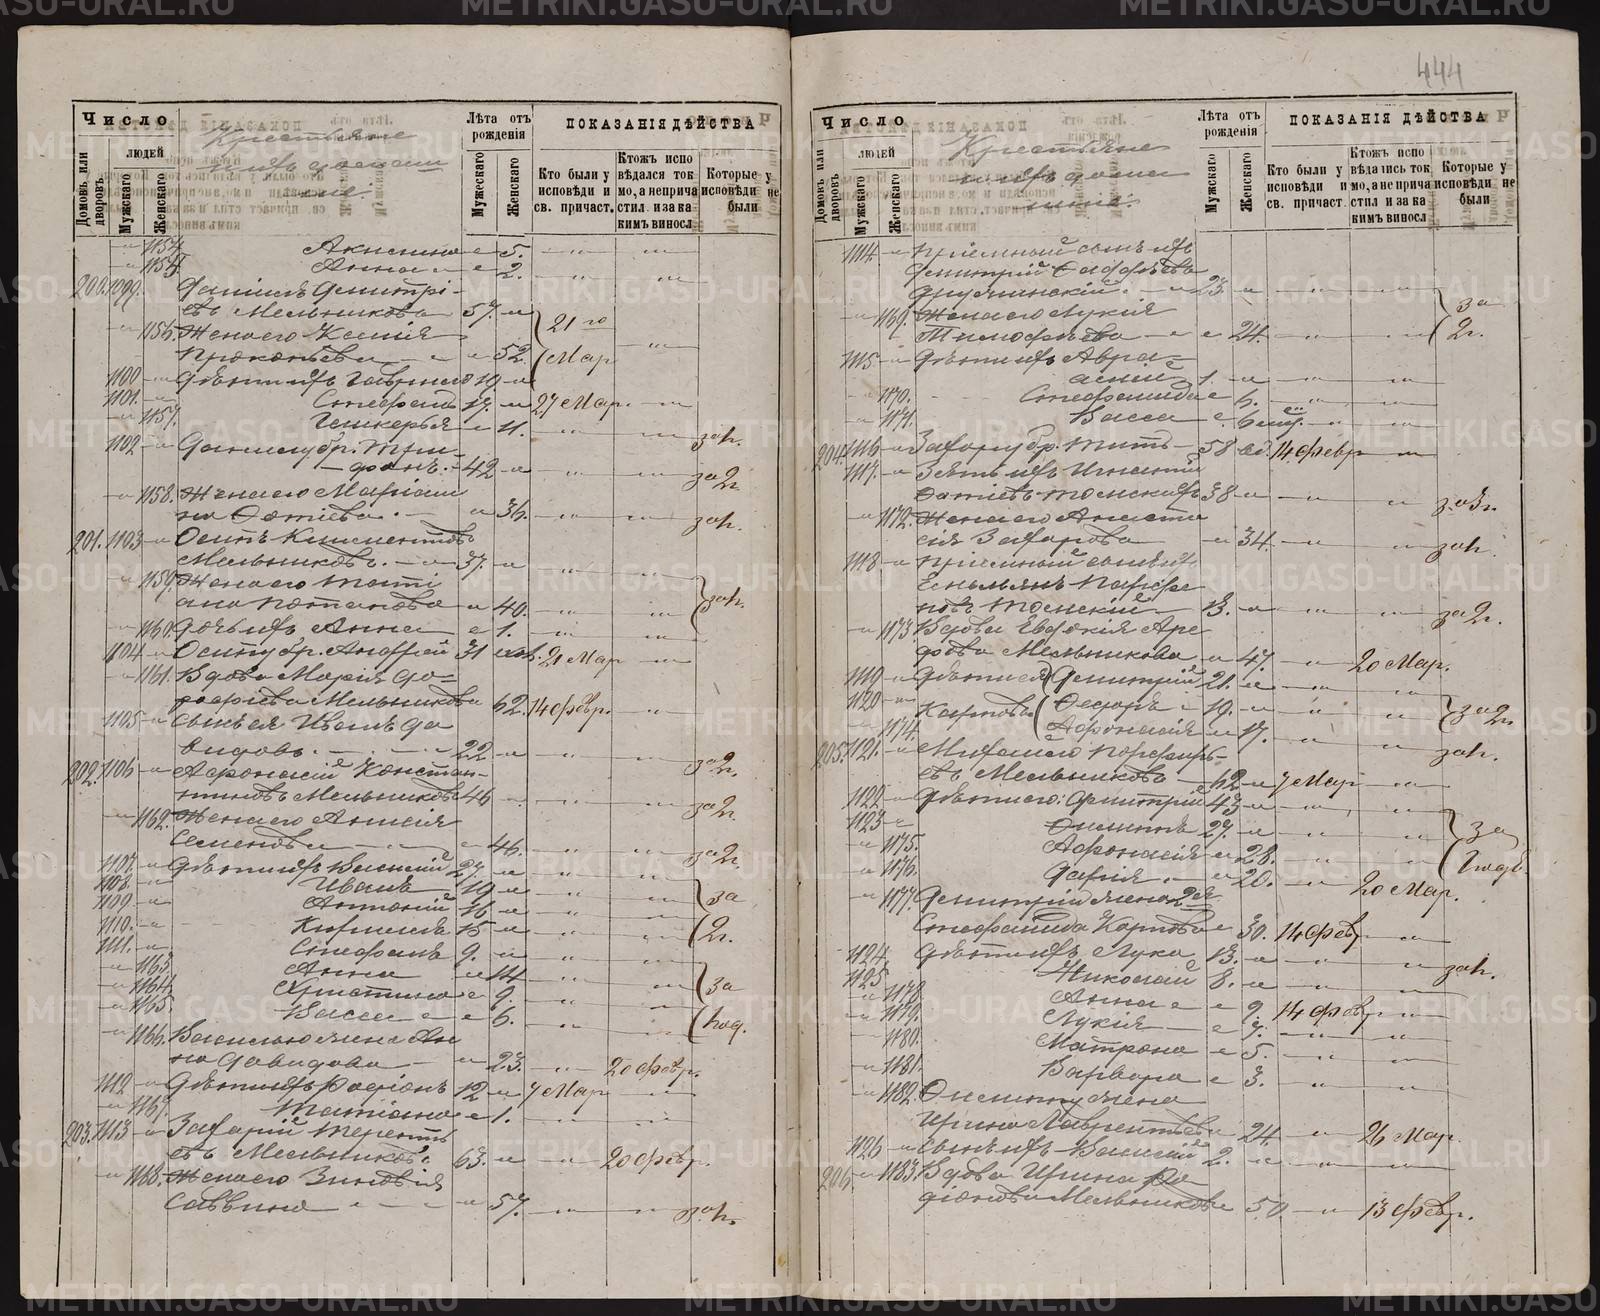 444
Число
людей
Домовъ или дворовъ.
Мужскаго
Женскаго
Крестьяне
Лѣта отъ рожденія
Мужескаго
Женскаго
ПОКАЗАНІЯ ДѢЙСТВА
Кто были у исповѣди и св. причаст.
Ктожъ испо вѣдался ток мо, а неприча стил и за ка кимъ виносл
Которые у исповѣди не были
1154 Аксинья 5.
1155 Анна 2.
200. 1099. Даніилъ Димитрі-
евъ Мельниковъ 57.
1156. Жена его Ксенія 21го
Прокопьева 52. Мар
1100 Дѣти ихъ Гавріилъ 19
1101. Стефанъ 17. 27 Мар.
1157. Гликерья 11. за 1г.
1102 Даніилу бр. Три-
фонъ. 42 за 2г.
1158. Жена его Маріам
на Фотіева. 36. за 1г.
201. 1103 Осипъ Климентовъ
Мельниковъ. 37.
1159. Жена его Тати
ана Потапова 40. за 1г.
1160. Дочь ихъ Анна 1.
1104 Осипу бр. Андрей 31 хол. 21 Мар
1161. Вдова Марія До-
рофіева Мельникова 62. 14 февр.
1105 Сынъ ея Иванъ Да
видовъ. 22 за 2г.
202. 1106 Афонасій Констан-
тиновъ Мельниковъ 46 за 2г.
1162. Жена его Анисія
Семенова 46. за 2г.
1107. Дѣти ихъ Василій 27.
1108. Иванъ 19 за
1109. Антоній 16
1110. Кириллъ 15 2г.
1111. Стефанъ 9.
1163. Анна 14 за
1164. Христина 9.
1165. Васса 6. 1год.
1166. Василью жена Ан
на Давидова 23. 20 февр.
1112 Дѣти ихъ Родіонъ 12 7 Мар
1167. Татіана 1.
203. 1113 Захарій Терентъ
евъ Мельниковъ. 63. 20 февр.
1168. Жена его Зиновія
Саввина 57. за 1г.
Число
людей
Домовъ или дворовъ.
Мужскаго
Женскаго
Крестьяне
Лѣта отъ рожденія
Мужескаго
Женскаго
ПОКАЗАНІЯ ДѢЙСТВА
Кто были у исповѣди и св. причаст.
Ктожъ испо вѣдался ток мо, а неприча стил и за ка кимъ виносл
Которые у исповѣди не были
1114 Пріемный сынъ ихъ
Димитрій
23 за
1169. Жена его Лукія
Тимофѣева 24. 2г.
1115 Дѣти ихъ Авра-
амій 1.
1170. Стефанида 6.
1171. Васса 6 мѣ.
204. 1116 Захару бр. Титъ 58 вд. 14 февр
1117. Зять ихъ Игнатій
Фотіевъ Томскихъ 38 за 3г.
1172. Жена его Анаста
сія Захарова 34. за 1г.
1118 Пріемный сынъ ихъ
Емельянъ Парфе
новъ Томскій 13. за 2г.
1173 Вдова Евдокія Аре
фова Мельникова 47. 20 Мар.
1119 Дѣти ея Димитрій 21.
1120 Карповы Федоръ 19. за 2г.
1174. Афонасія 17. за 1г.
205. 1121. Михаило Порфирь-
евъ Мельниковъ 62 7 Мар
1122 Дѣти его: Димитрій 43
1123 Филиппъ 27. за
1175. Афонасія 28. 1 годъ.
1176. Дарія. 20. 20 Мар.
1177. Димитрій жена 2я
Стефанида Карпова 30. 14 фев
1124. Дѣти ихъ Лука 13. за 1г.
1125 Николай 8.
1178. Анна 9. 14 февр
1179. Лукія 7.
1180. Матрона 5.
1181. Варвара 3.
1182. Филиппу жена
Ирина Лаврентьева 24. 26 Мар.
1126 Сынъ ихъ Василій 2.
206 1183. Вдова Ирина Ро
діонова Мельникова 50. 13 февр.